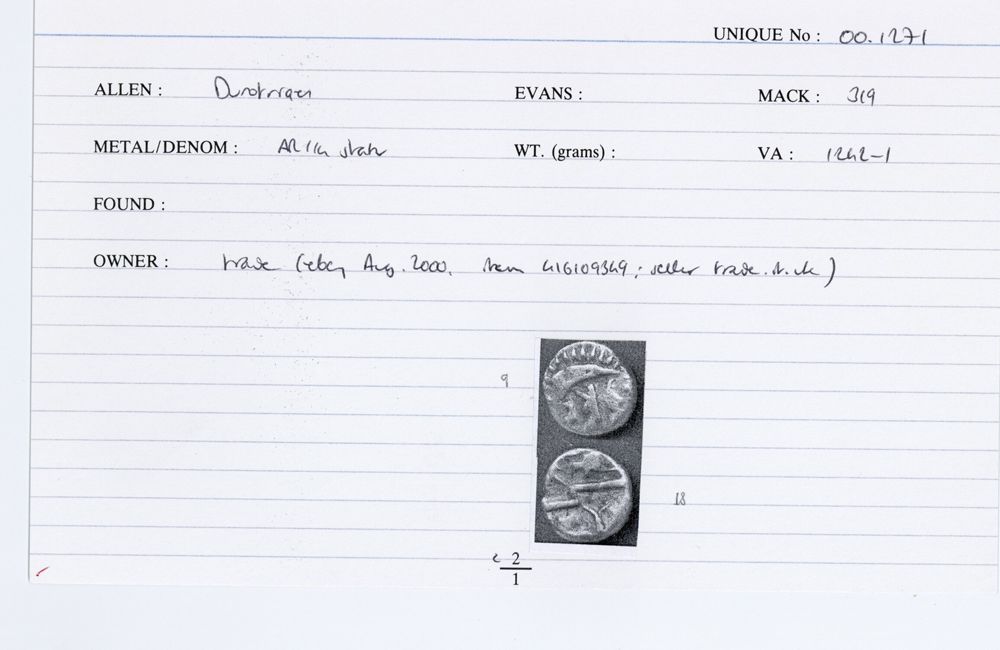 UNIQUE No : 00.1271
ALLEN : Durotrigan EVANS : MACK : 319
METAL/DENOM : AR 1/4 stater WT. (grams) : VA : 1242-1
FOUND :
OWNER : trade (ebay Aug. 2000. item 416109349; seller trade.
9
18
c 2
1